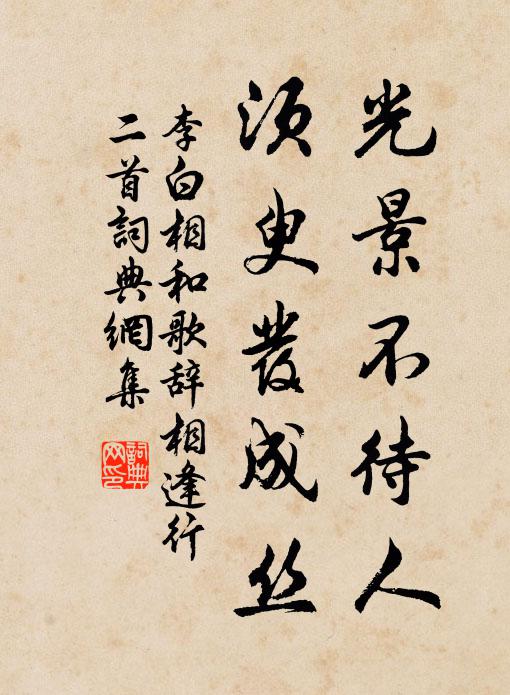 光景不待人
须叟發成丝
李白相和歌辞相逢行
二首詞典網集
詞典
网印